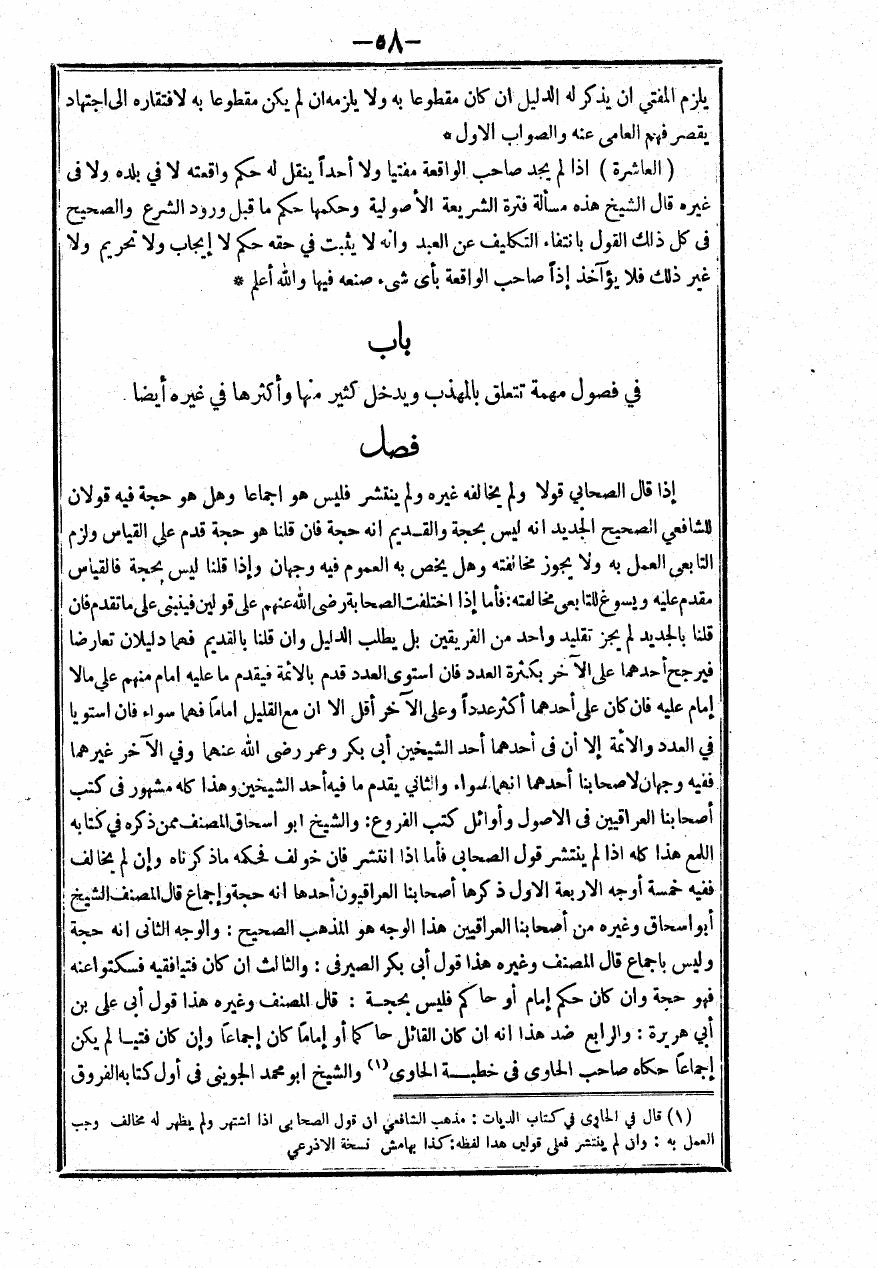 —٥٨—
يلزم المفتي ان يذكر له الدليل ان كان مقطوعا به ولا يلزمه ان لم يكن مقطوعا به لافتقاره الى اجتهاد
يقصر فهم العامى عنه والصواب الاول *
( العاشرة ) اذا لم يجد صاحب الواقعة مفتيا ولا أحداً ينقل له حكم واقعته لا في بلده ولا فى
غيره قال الشيخ هذه مسألة فترة الشريعة الأصولية وحكمها حكم ما قبل ورود الشرع والصحيح
فى كل ذلك القول بانتفاء التكليف عن العبد وانه لا يثبت في حقه حكم لا إيجاب ولا تحريم ولا
غير ذلك فلا يؤآخذ إذاً صاحب الواقعة بأى شىء صنعه فيها والله أعلم *
باب
في فصول مهمة تتعلق بالمهذب ويدخل كثير منها وأكثرها في غيره أيضا .
فصل
إذا قال الصحابي قولا ولم يخالفه غيره ولم ينتشر فليس هو اجماعا وهل هو حجة فيه قولان
للشافعي الصحيح الجديد انه ليس بحجة والقـديم انه حجة فان قلنا هو حجة قدم علي القياس ولزم
التابعى العمل به ولا يجوز مخالفته وهل يخص به العموم فيه وجهان وإذا قلنا ليس بحجة فالقياس
مقدم عليه ويسوغ للتابعى مخالفته: فأما إذا اختلفت الصحابة رضى الله عنهم على قولين فينبنى على ماتقدم فان
قلنا بالجديد لم يجز تقليد واحد من الفريقين بل يطلب الدليل وان قلنا بالقديم فهما دليلان تعارضا
فيرجح أحدهما على الآخر بكثرة العدد فان استوى العدد قدم بالائمة فيقدم ما عليه امام منهم علي مالا
إمام عليه فان كان على أحدهما أكثر عدداً وعلى الآخر أقل الا ان مع القليل اماماً فهما سواء فان استويا
في العدد والائمة إلا أن فى أحدهما أحد الشيخين أبى بكر وعمر رضى الله عنهما وفي الآخر غيرهما
ففيه وجهان لاصحابنا أحدهما انهما سواء والثاني يقدم ما فيه أحد الشيخين وهذا كله مشهور فى كتب
أصحابنا العراقيين فى الاصول وأوائل كتب الفروع: والشيخ ابو اسحاق المصنف ممن ذكره في كتابه
اللمع هذا كله اذا لم ينتشر قول الصحابى فأما اذا انتشر فان خولف فحكمه ماذكرناه وإن لم يخالف
ففيه خمسة أوجه الاربعة الاول ذكرها أصحابنا العراقيون أحدها انه حجة وإجماع قال المصنف الشيخ
أبو اسحاق وغيره من أصحابنا العراقيين هذا الوجه هو المذهب الصحيح : والوجه الثانى انه حجة
وليس باجماع قال المصنف وغيره هذا قول أبى بكر الصيرفى : والثالث ان كان فتيا فقيه فسكتوا عنه
فهو حجة وان كان حكم إمام أو حاكم فليس بحجـة : قال المصنف وغيره هذا قول أبى على بن
أبي هريرة : والرابع ضد هذا انه ان كان القائل حاكما أو إماماً كان إجماعاً وإن كان فتيـا لم يكن
إجماعاً حكاه صاحب الحاوى فى خطبـة الحاوى(١) والشيخ ابو محمد الجوينى فى أول كتابه الفروق
(١) قال في الحاوى في كتاب الديات : مذهب الشافعي ان قول الصحابي اذا اشتهر ولم يظهر له مخالف وجب
العمل به : وان لم ينتشر فعلى قولين هدا لفظه: كذا بهامش نسخة الاذرعي